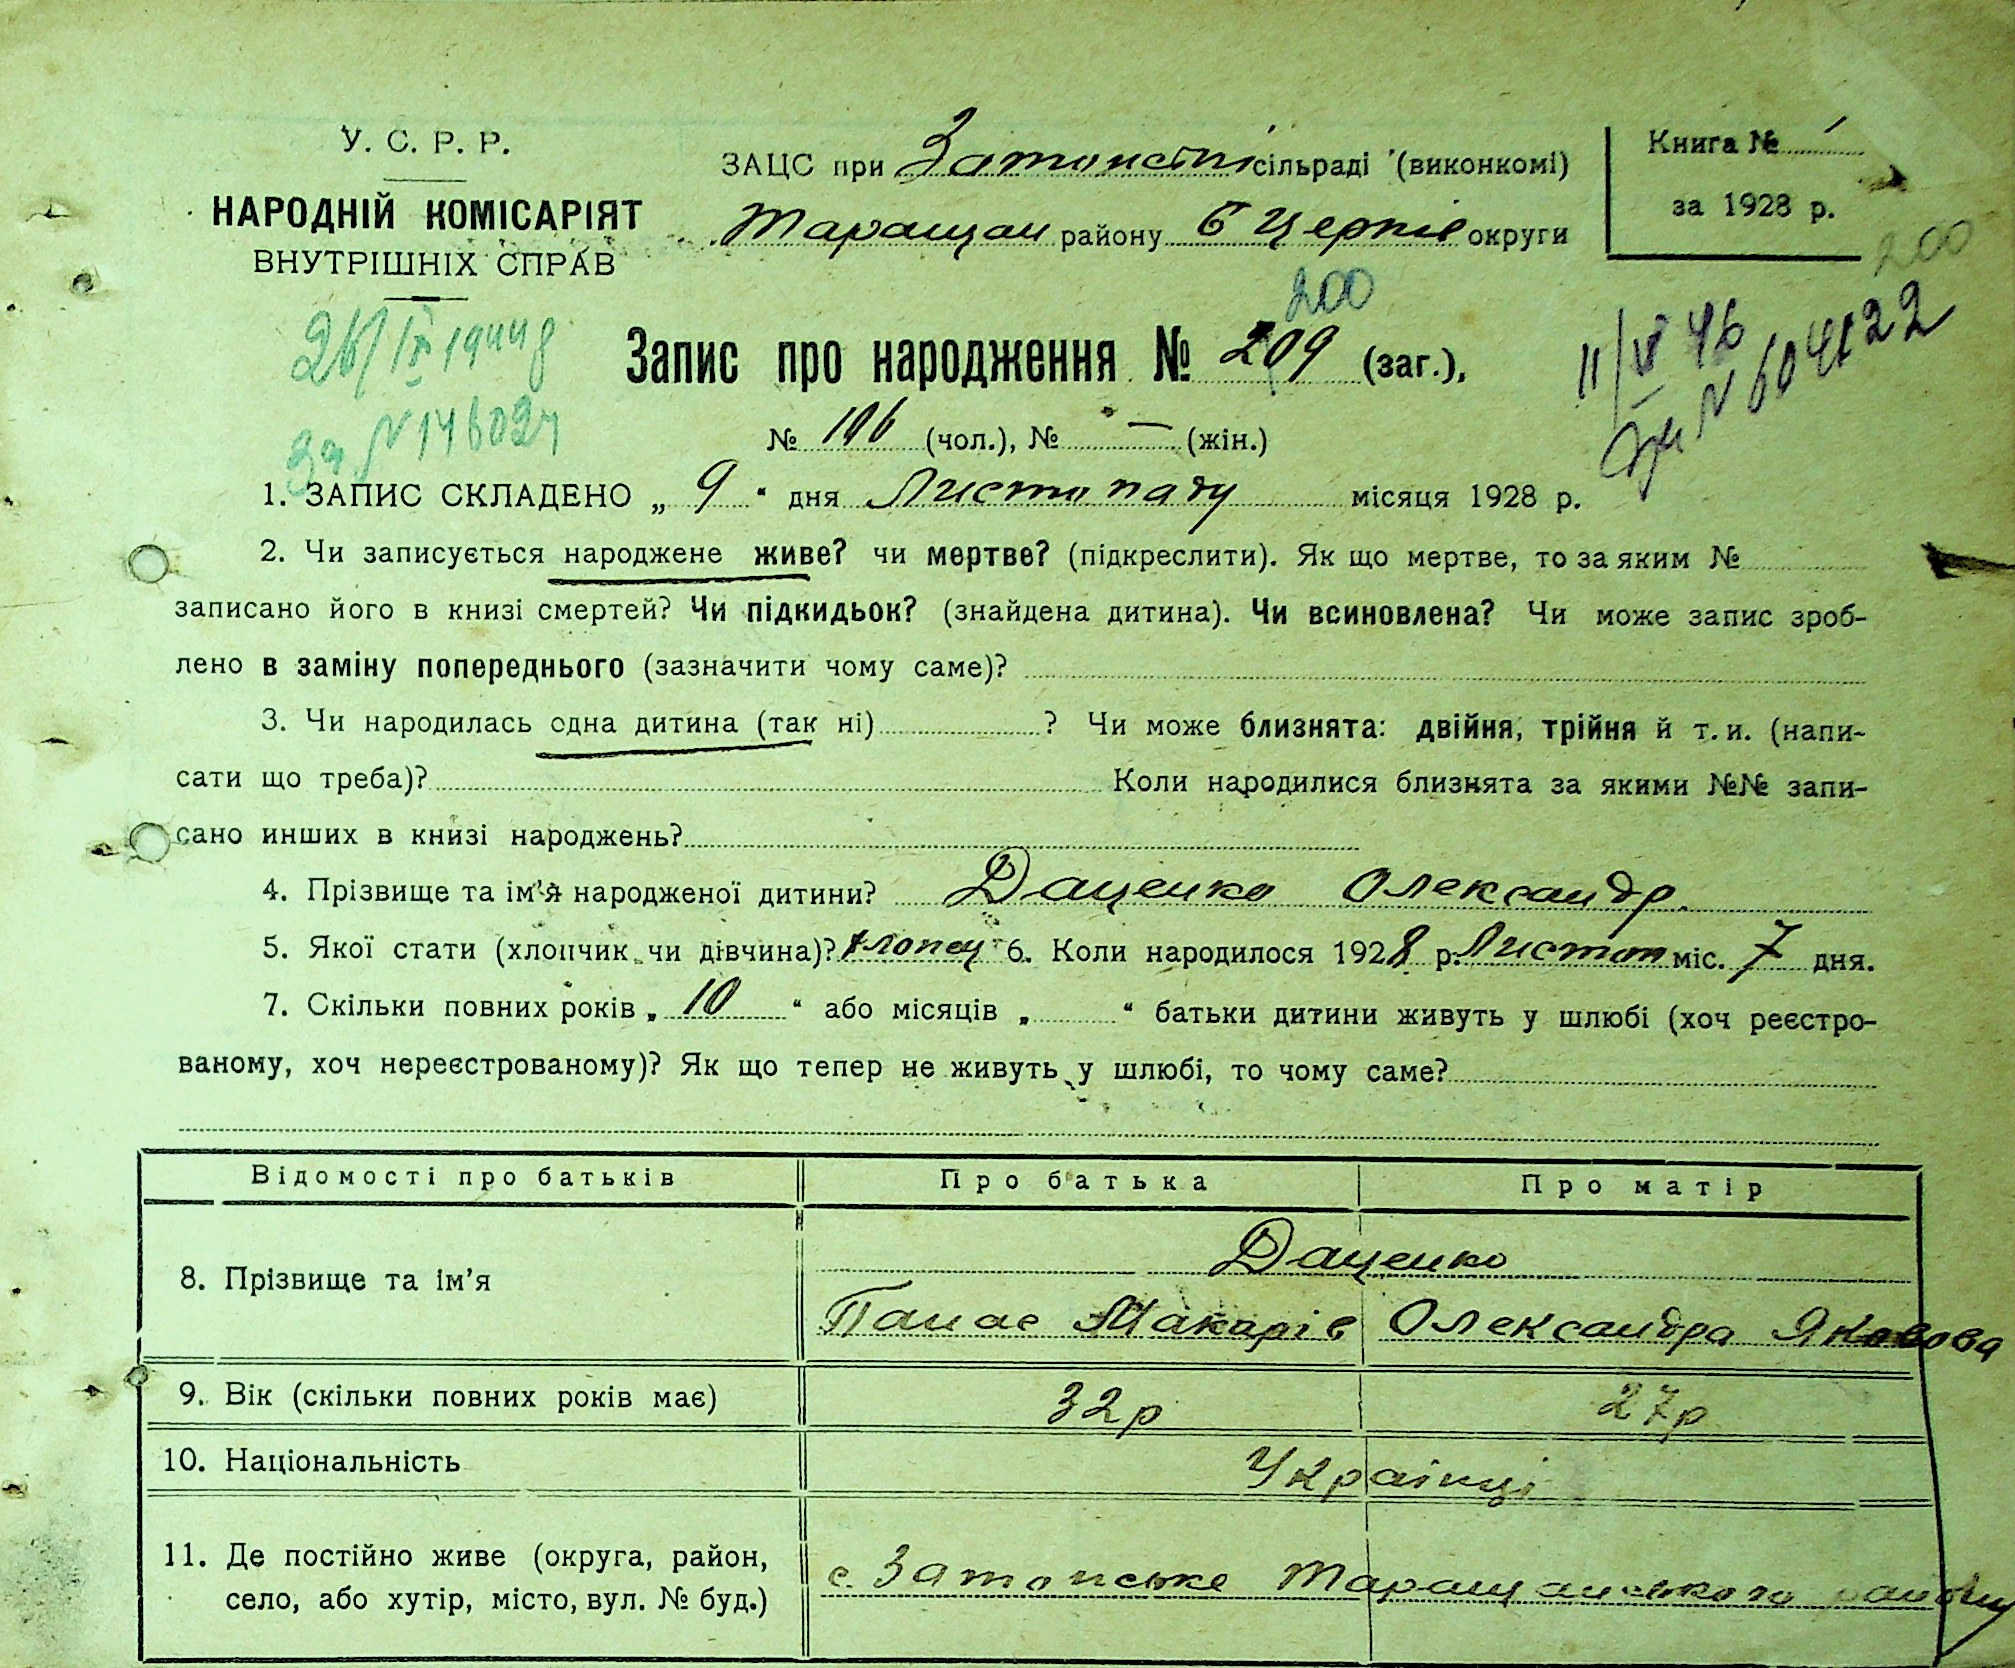 У. С. Р. Р.
НАРОДНІЙ КОМІСАРІЯТ
ВНУТРІШНІХ СПРАВ
ЗАЦС при сільраді (виконкомі)
Таращан району Б Церків округи
Книга № 1
за 1928 р.
200
26/IX 1944 р
за N 146024
200
Запис про народження № 209 (заг.),
11/VI 46
N 604122
№ 106 (чол.), № — (жін.)
1. ЗАПИС СКЛАДЕНО „ 9 “ дня Листопаду місяця 1928 р.
2. Чи записується народжене живе? чи мертве? (підкреслити). Як що мертве, то за яким №
записано його в книзі смертей? Чи підкидьок? (знайдена дитина). Чи всиновлена? Чи може запис зроб-
лено в заміну попереднього (зазначити чому саме)?
3. Чи народилась одна дитина (так ні) ? Чи може близнята: двійня, трійня й т. и. (напи-
сати що треба)? Коли народилися близнята за якими №№ запи-
сано инших в книзі народжень?
4. Прізвище та ім'я народженої дитини? Даценко Олександр.
5. Якої стати (хлопчик чи дівчина)? хлопец 6. Коли народилося 1928 р. Листоп міс. 7 дня.
7. Скільки повних років „ 10 “ або місяців „ “ батьки дитини живуть у шлюбі (хоч реєстро-
ваному, хоч нереєстрованому)? Як що тепер не живуть у шлюбі, то чому саме?
Відомості про батьків Про батька Про матір
8. Прізвище та ім'я Даценко
Панас Макарів Олександра Яковова
9. Вік (скільки повних років має) 32р 27р
10. Національність Українці
11. Де постійно живе (округа, район,
село, або хутір, місто, вул. № буд.)
с. Затонське Таращанського району